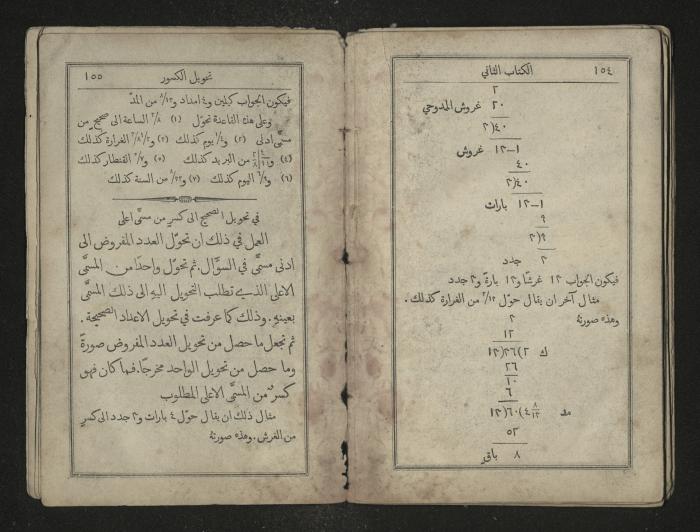 ١٥٤ الكتاب الثاني
٢
٢٠ غروش المدوحي
٤٠(٣
١–١٣ غروش
٤٠
٤٠(٣
١–١٣ بارات
٩
٩(٣
٣ جدد
فيكون الجواب ١٣ غرشًا و١٣ بارة و٣ جدد
مثال آخر ان يقال حوّل من الغرارة كذلك .
وهذه صورته
٢
١٣
ك ٢)٣٦(١٣
٢٦
١٠
٦
مد
٥٢
٨ باقٍ
تحويل الكسور ١٥٥
فيكون الجواب كيلين و٤ امداد و من المدّ
وعلى هذه القاعدة تحوّل (١) الساعة الى صحيح من
مسمّى ادنى (٢) يوم كذلك (٣) الغرارة كذلك
(٤) من البريد كذلك (٥) القنطار كذلك
(٦) اليوم كذلك (٧) من السنة كذلك
في تحويل الصحيح الى كسر من مسمّى اعلى
العمل في ذلك ان تحوّل العدد المفروض الى
ادنى مسمّى في السؤال . ثم تحوّل واحدًا من المسمّى
الاعلى الذي تطلب التحويل اليه الى ذلك المسمّى
بعينه . وذلك كما عرفت في تحويل الاعداد الصحيحة .
ثم تجعل ما حصل من تحويل العدد المفروض صورةً
وما حصل من تحويل الواحد مخرجًا . فما كان فهو
كسرٌ من المسمّى الاعلى المطلوب
مثال ذلك ان يقال حوّل ٤ بارات و٣ جدد الى كسرٍ
من الغرش . وهذه صورته